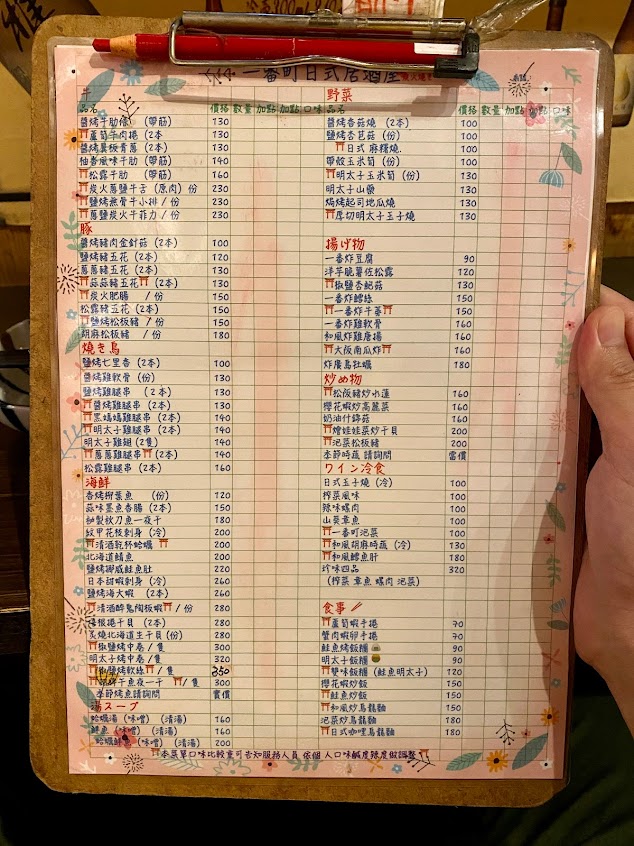 一番町日式居酒屋
牛
品名 價格 數量 加點 加點 口味
醬烤牛肋條 (帶筋) 130
蘆筍牛肉捲 (2本) 130
醬烤翼板青蔥 (2本) 130
柚香風味牛肋 (帶筋) 140
松露牛肋 (帶筋) 160
炭火蔥鹽牛舌 (原肉) 份 230
鹽烤無骨牛小排/份 230
蔥鹽炭火牛菲力/份 230
豚
醬烤豬肉金針菇 (2本) 100
鹽烤豬五花 (2本) 120
蔥蔥豬五花 (2本) 130
蒜蒜豬五花 (2本) 130
炭火肥腸 /份 150
松露豬五花 (2本) 150
鹽烤松板豬 /份 150
胡麻松板豬 /份 180
燒き鳥
鹽烤七里香 (2本) 100
鹽烤雞軟骨 (份) 130
鹽烤雞腿串 (2本) 130
醬烤雞腿串 (2本) 130
黑媽媽雞腿串 (2本) 140
明太子雞腿串 (2本) 140
明太子雞翅 (2隻) 140
蔥蔥雞腿串 (2本) 140
松露雞腿串 (2本) 160
海鮮
香烤柳葉魚 (份) 120
蒜味墨魚香腸 (2本) 150
秋刀魚一夜干 180
紋甲花枝刺身 (冷) 200
清酒乾杯蛤蠣 200
北海道鯖魚 200
鹽烤挪威鮭魚肚 220
日本甜蝦刺身 (冷) 260
鹽烤海大蝦 (2本) 260
清酒醉鬼陶板蝦/份 280
手捲 (2本) 280
炙燒北海道生干貝 (份) 280
椒鹽烤中卷/隻 300
明太子烤中卷/隻 320
椒鹽烤軟絲/隻 350
魚一夜干 /隻 300
季節烤魚請詢問 時價
湯スープ
蛤蠣湯 (味噌) (清湯) 160
鮮魚 (味噌) (清湯) 160
蛤蠣鮮魚 (味噌) (清湯) 200
野菜
品名 價格 數量 加點 加點 口味
醬烤香菇燒 (2本) 100
鹽烤杏苞菇 (份) 100
日式麻糬燒 100
帶殼玉米筍 (份) 130
明太子玉米筍 (份) 130
明太子山藥 130
焗烤起司地瓜燒 130
厚切明太子玉子燒 130
揚げ物
一番炸豆腐 90
洋芋脆薯佐松露 120
椒鹽杏鮑菇 150
一番炸鱈絲 150
一番炸牛蒡 150
一番炸雞軟骨 160
和風炸雞唐揚 160
大阪南瓜炸 160
炸廣島牡蠣 180
炒め物
松阪豬炒水蓮 160
櫻花蝦炒高麗菜 160
奶油什錦菇 160
燴娃娃菜炒干貝 200
泡菜松板豬 200
季節時蔬請詢問 當價
ワイン冷食
日式玉子燒 (冷) 100
榨菜風味 100
辣味螺肉 100
山葵章魚 100
一番町泡菜 100
和風胡麻時蔬 (冷) 130
和風鱈魚肝 180
珍味四品 320
(榨菜 章魚 螺肉 泡菜)
食事
蘆筍蝦手捲 70
蟹肉蝦卵手捲 70
鮭魚烤飯糰 90
明太子飯糰 90
雙味飯糰 (鮭魚明太子) 120
櫻花蝦炒飯 150
鮭魚炒飯 150
和風炒烏龍麵 150
泡菜炒烏龍麵 180
日式咖哩烏龍麵 180
本菜單口味比較重可告知服務人員 依個人口味鹹度辣度做調整